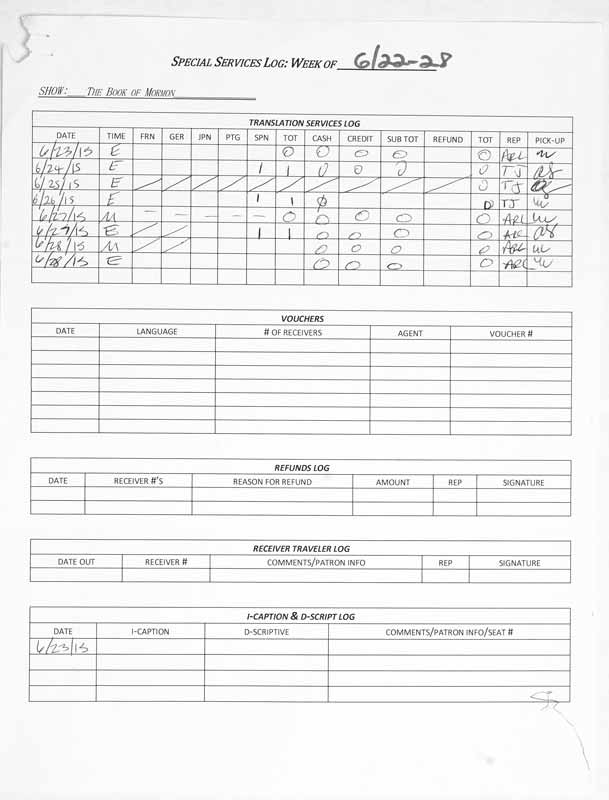 SPECIAL SERVICES LOG: WEEK OF 6/22-28
SHOW: THE BOOK OF MORMON
TRANSLATION SERVICES LOG
DATE TIME FRN GER JPN PTG SPN TOT CASH CREDIT SUB TOT REFUND TOT REP PICK-UP
6/23/15 E 0 0 0 0 0 ARL
6/24/15 E 1 1 0 0 0 0 TJ
6/25/15 E / / / / / / / / / / 0 TJ
6/26/15 E 1 1 0 0 TJ
6/27/15 M - - - - - 0 0 0 0 0 ARL
6/27/15 E 1 1 0 0 0 0 ARL
6/28/15 M 0 0 0 0 ARL
6/28/15 E 0 0 0 0 ARL
VOUCHERS
DATE LANGUAGE # OF RECEIVERS AGENT VOUCHER #
REFUNDS LOG
DATE RECEIVER #'S REASON FOR REFUND AMOUNT REP SIGNATURE
RECEIVER TRAVELER LOG
DATE OUT RECEIVER # COMMENTS/PATRON INFO REP SIGNATURE
I-CAPTION & D-SCRIPT LOG
DATE I-CAPTION D-SCRIPTIVE COMMENTS/PATRON INFO/SEAT #
6/23/15